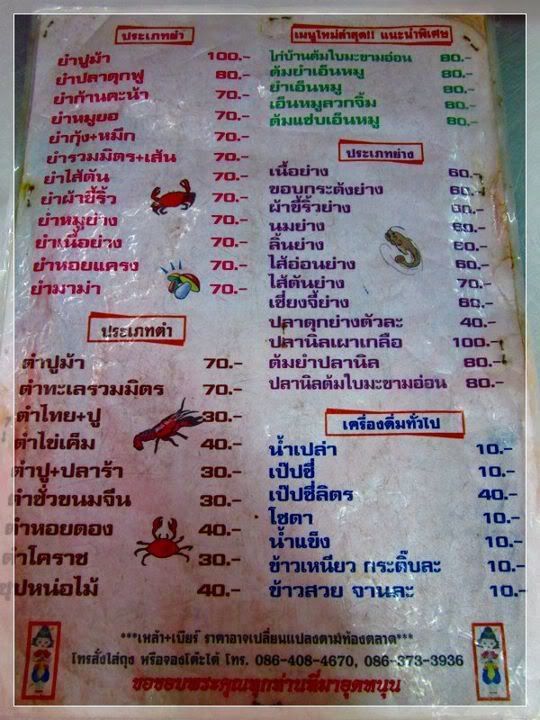 ประเภทยำ
ยำปูม้า 100.-
ยำปลาดุกฟู 80.-
ยำก้านคะน้า 70.-
ยำหมูยอ 70.-
ยำกุ้ง+หมึก 70.-
ยำรวมมิตร+เส้น 70.-
ยำไส้ตัน 70.-
ยำผ้าขี้ริ้ว 70.-
ยำหมูย่าง 70.-
ยำเนื้อย่าง 70.-
ยำหอยแครง 70.-
ยำมาม่า 70.-
ประเภทตำ
ตำปูม้า 70.-
ตำทะเลรวมมิตร 70.-
ตำไทย+ปู 30.-
ตำไข่เค็ม 40.-
ตำปู+ปลาร้า 30.-
ตำซั่วขนมจีน 30.-
ตำหอยดอง 40.-
ตำโคราช 30.-
ซุปหน่อไม้ 40.-
เมนูใหม่ล่าสุด!! แนะนำพิเศษ
ไก่บ้านต้มใบมะขามอ่อน 80.-
ต้มยำเอ็นหมู 80.-
ยำเอ็นหมู 80.-
เอ็นหมูลวกจิ้ม 80.-
ต้มแซ่บเอ็นหมู 80.-
ประเภทย่าง
เนื้อย่าง 60.-
ขอบกระด้งย่าง 60.-
ผ้าขี้ริ้วย่าง 60.-
นมย่าง 60.-
ลิ้นย่าง 60.-
ไส้อ่อนย่าง 60.-
ไส้ตันย่าง 70.-
เซี่ยงจี้ย่าง 60.-
ปลาดุกย่างตัวละ 40.-
ปลานิลเผาเกลือ 100.-
ต้มยำปลานิล 80.-
ปลานิลต้มใบมะขามอ่อน 80.-
เครื่องดื่มทั่วไป
น้ำเปล่า 10.-
เป๊ปซี่ 10.-
เป๊ปซี่ลิตร 40.-
โซดา 10.-
น้ำแข็ง 10.-
ข้าวเหนียว กระติ๊บละ 10.-
ข้าวสวย จานละ 10.-
***เหล้า+เบียร์ ราคาอาจเปลี่ยนแปลงตามท้องตลาด***
โทรสั่งใส่ถุง หรือจองโต๊ะได้ โทร. 086-408-4670, 086-373-3936
ขอขอบพระคุณทุกท่านที่มาอุดหนุน